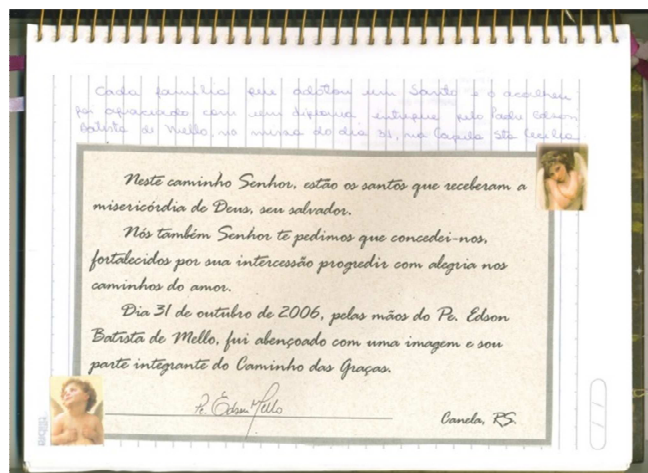 Cada família que adotou um Santo e o acolheu
foi agraciado com um diploma, entregue pelo Padre Edson
Batista de Mello, na missa do dia 31, na Capela Sta Cecília
Neste caminho Senhor, estão os santos que receberam a
misericórdia de Deus, seu salvador.
Nós também Senhor te pedimos que concedei-nos,
fortalecidos por sua intercessão progredir com alegria nos
caminhos do amor.
Dia 31 de outubro de 2006, pelas mãos do Pe. Edson
Batista de Mello, fui abençoado com uma imagem e sou
parte integrante do Caminho das Graças.
Pe. Edson Mello
Canela, RS.